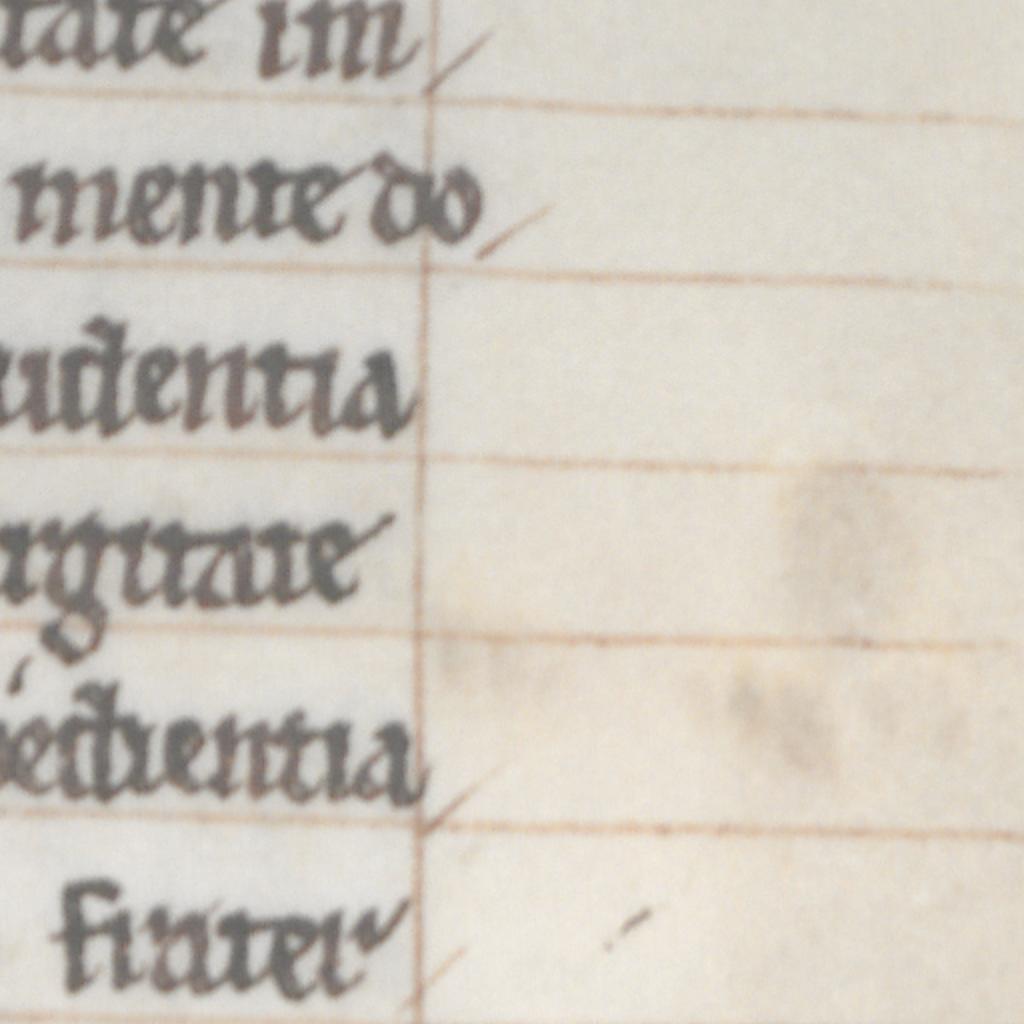 tate im
mente do
udentia
rgitate
bedientia
frater